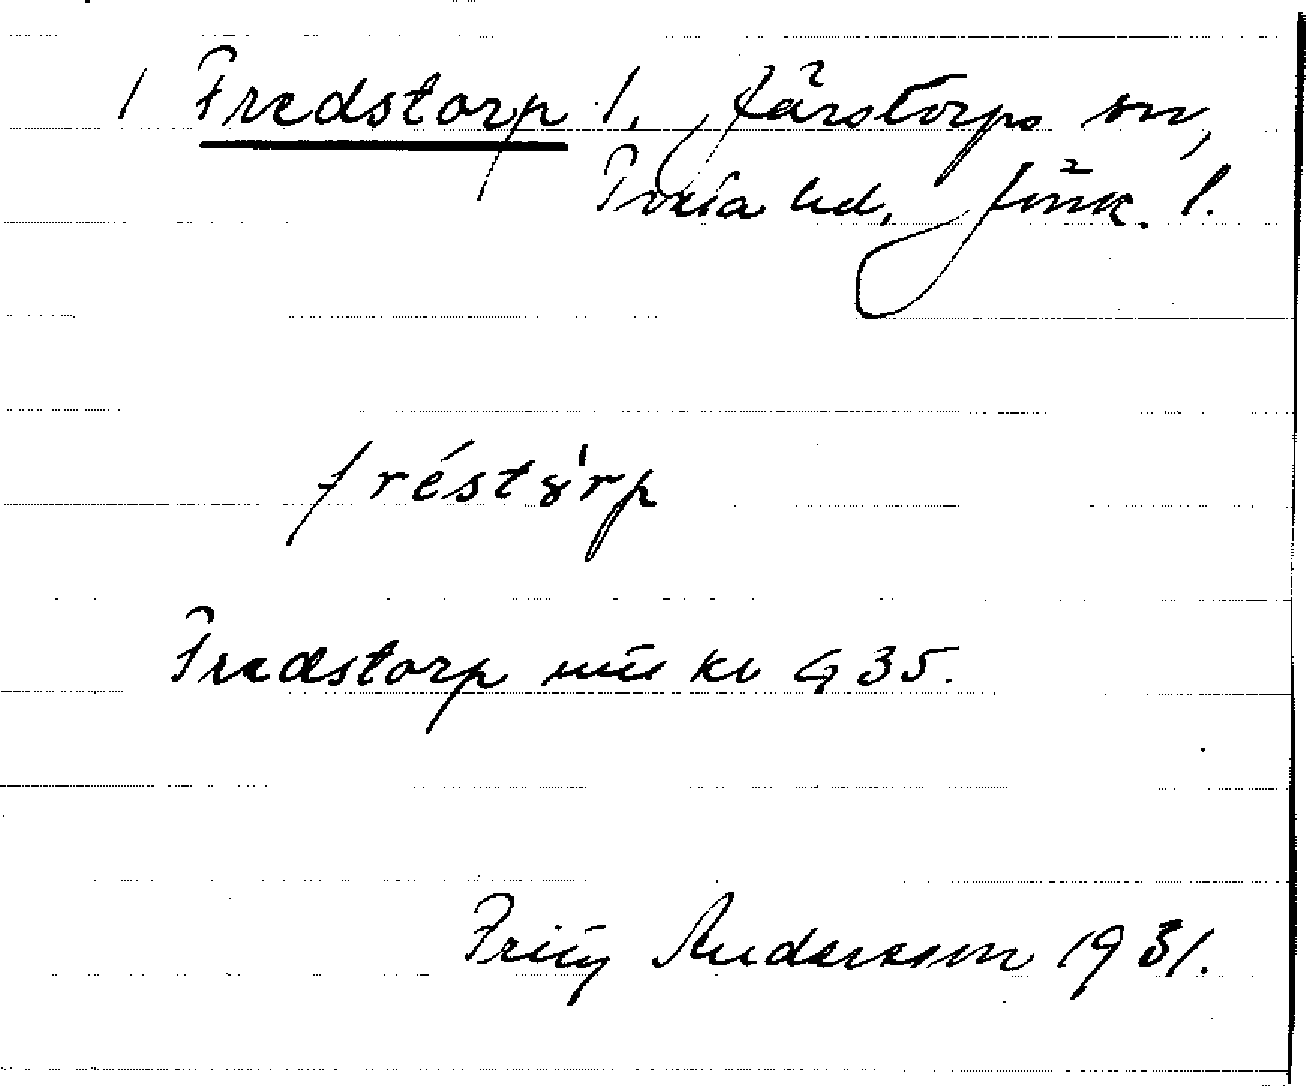 1 Fredstorp 1. Järstorps sn,
Tveta hd, Jönk. l.
fréstȣ́rp
Fredstorp mtl kv G 35.
Fritz Andersson 1931.